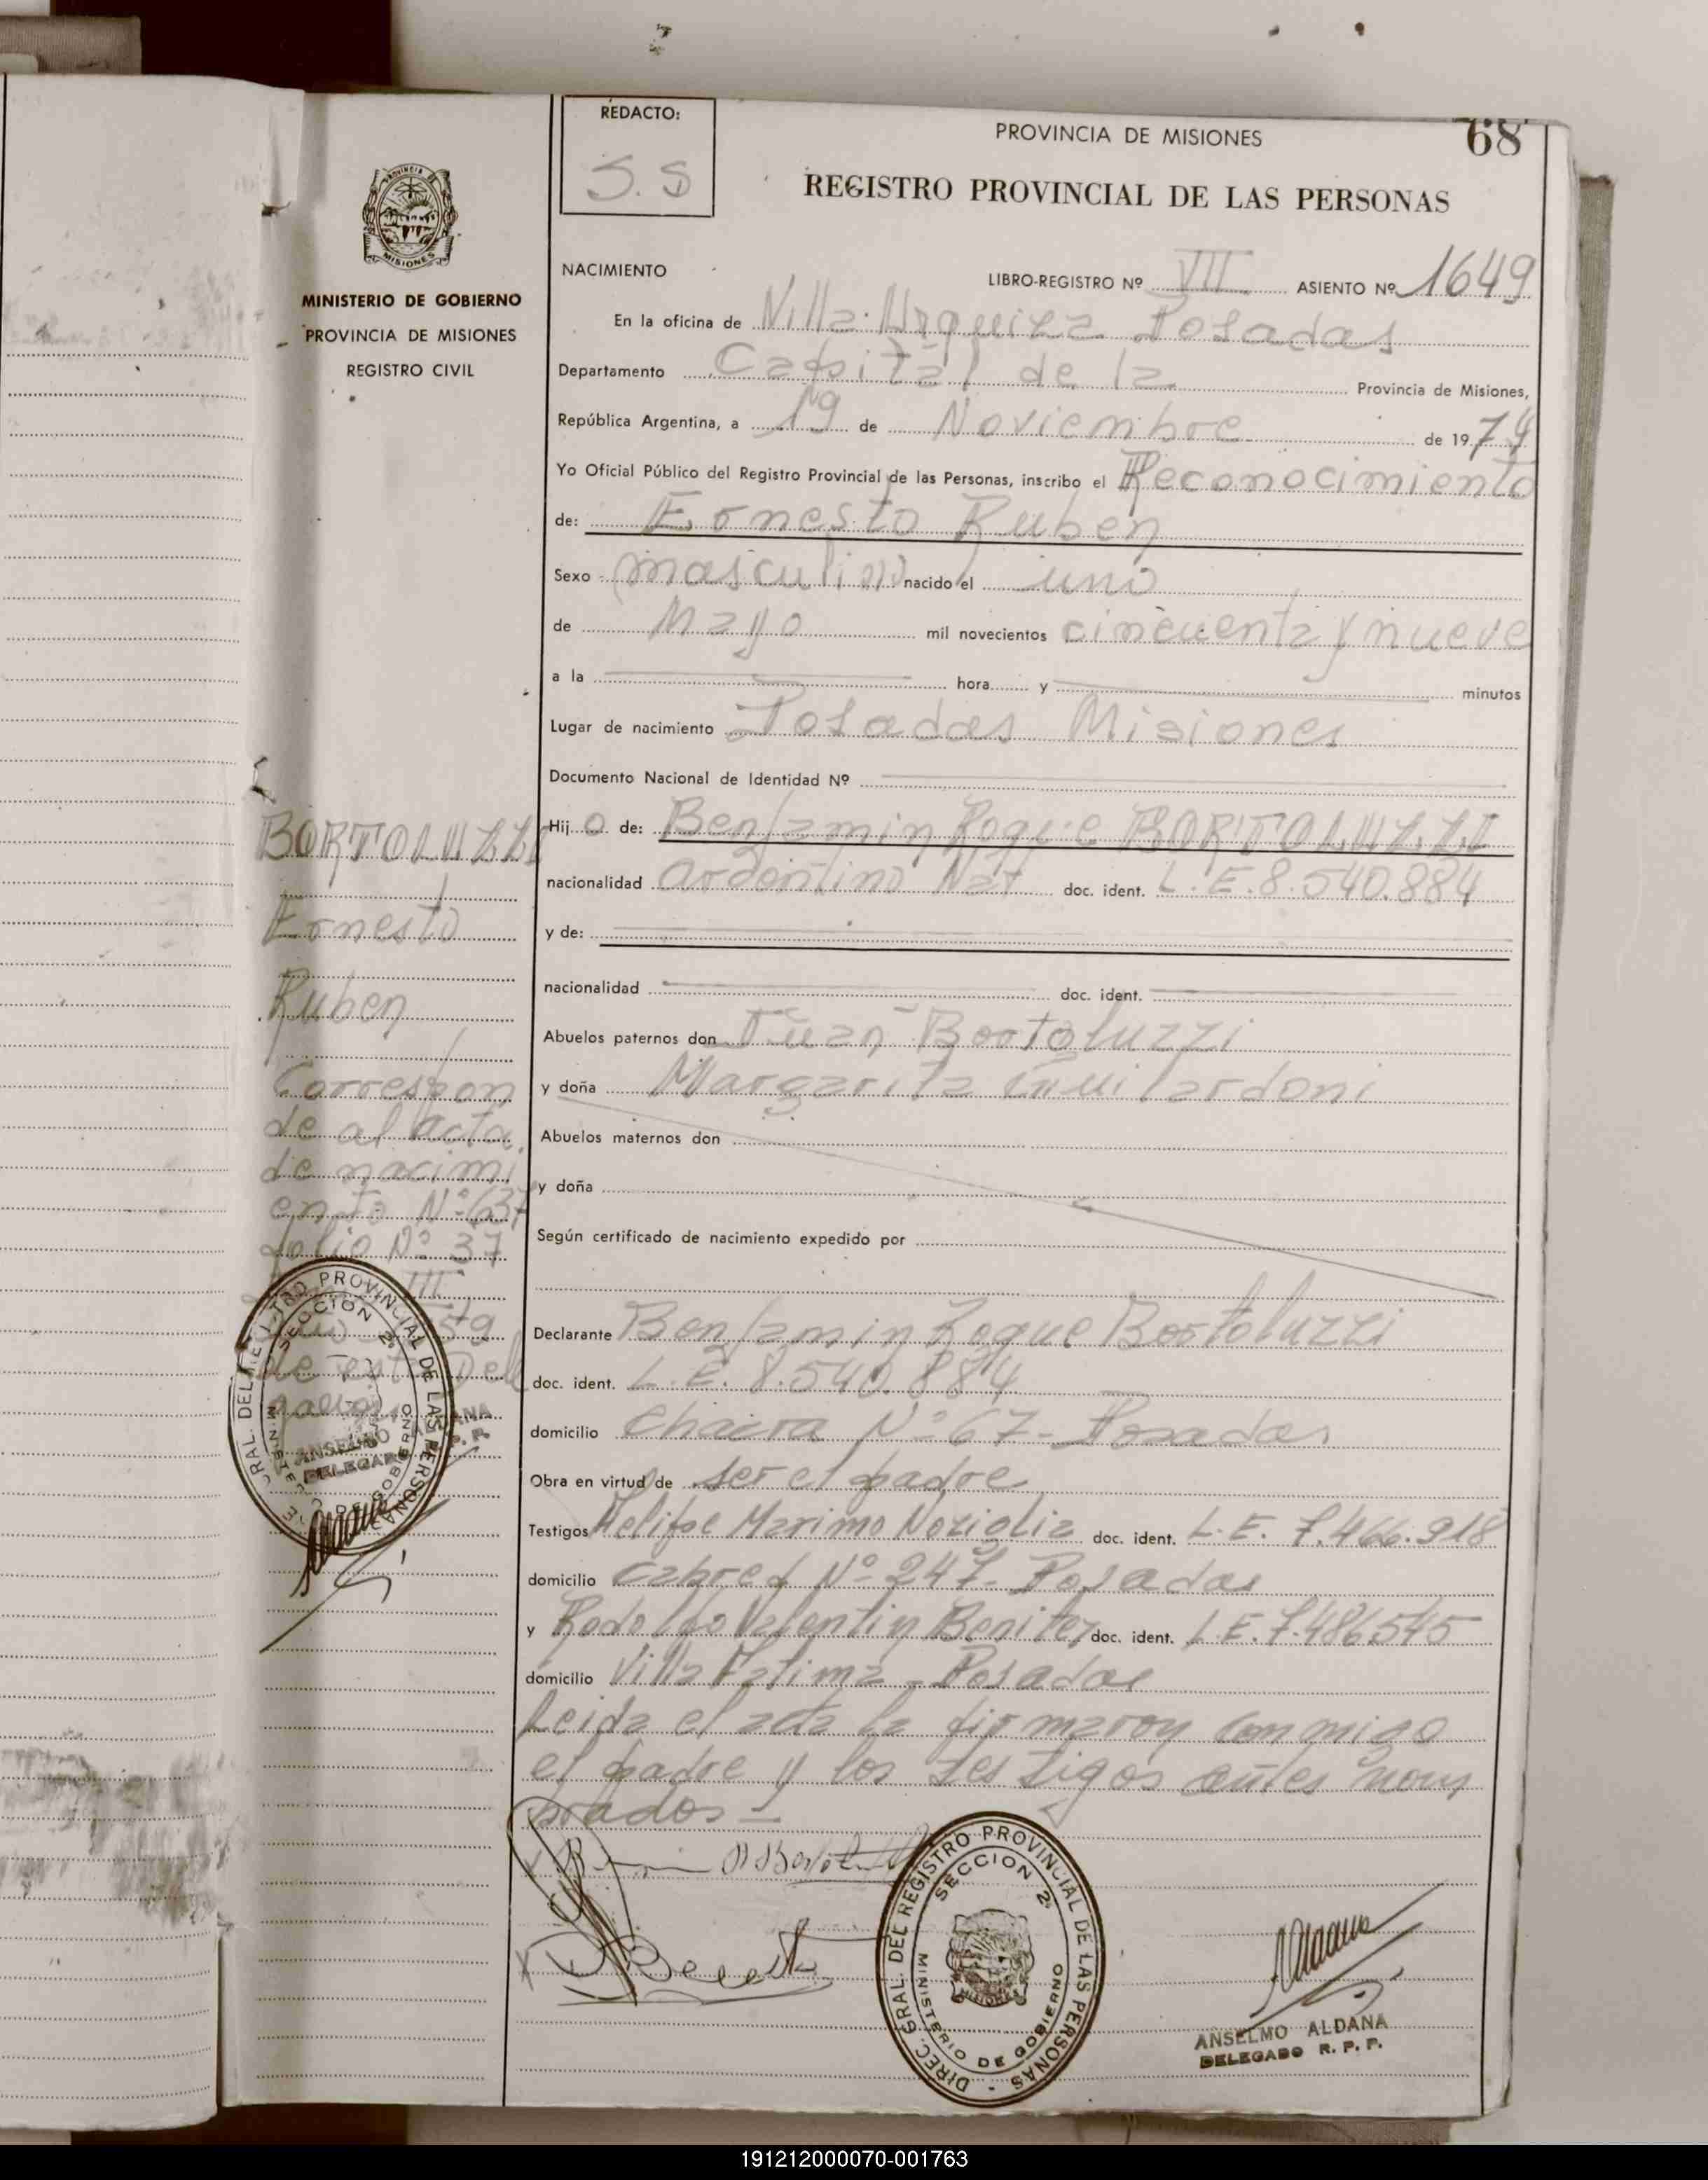 68
REDACTO:
S. S
PROVINCIA DE MISIONES
REGISTRO PROVINCIAL DE LAS PERSONAS
MINISTERIO DE GOBIERNO
PROVINCIA DE MISIONES
REGISTRO CIVIL
NACIMIENTO LIBRO-REGISTRO Nº VII ASIENTO Nº 1649
En la oficina de Villa Urquiza Posadas
Departamento Capital de la Provincia de Misiones,
República Argentina, a 19 de Noviembre de 1974
Yo Oficial Público del Registro Provincial de las Personas, inscribo el Reconocimiento
de: Ernesto Ruben
Sexo masculino nacido el uno
de Mayo mil novecientos cincuenta y nueve
a la hora y minutos
Lugar de nacimiento Posadas Misiones
Documento Nacional de Identidad Nº
Hijo de: Benjamin Roque BORTOLUZZI
nacionalidad argentino Nat doc. ident. L.E. 8.540.884
y de:
nacionalidad doc. ident.
Abuelos paternos don Juan Bortoluzzi
y doña Margarita Guilardoni
Abuelos maternos don
y doña
Según certificado de nacimiento expedido por
Declarante Benjamin Roque Bortoluzzi
doc. ident. L.E. 8.540.884
domicilio Chacra Nº 67 - Posadas
Obra en virtud de ser el padre
Testigos Maximo doc. ident. L.E. 7.466.918
domicilio Cabred Nº 247 - Posadas
y Rodolfo Valentin Benitez doc. ident. L.E. 7.486.545
domicilio Villa Fatima - Posadas
Leida el acta la firmaron conmigo
el padre y los testigos antes nom
brados -
BORTOLUZZI
Ernesto
Ruben
Correspon
de al acta
de nacimi
ento Nº 637
folio Nº 37
III
59
de esta Dele
DIREC. GRAL. DEL REGISTRO PROVINCIAL DE LAS PERSONAS
SECCION 2ª
MINISTERIO DE GOBIERNO
ANSELMO ALDANA
DELEGADO R. P. P.
DIREC. GRAL. DEL REGISTRO PROVINCIAL DE LAS PERSONAS
SECCION 2ª
MISIONES
MINISTERIO DE GOBIERNO
ANSELMO ALDANA
DELEGADO R. P. P.
191212000070-001763